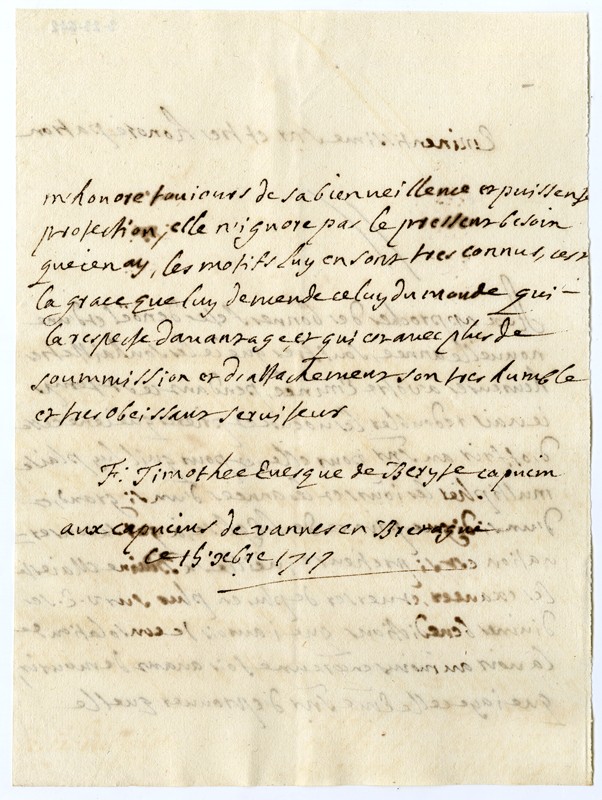 m'honore toujours de sa bienveillence et puissente
protection, elle n'ignore pas le pressent besoin
que i'en ay, les motifs luy en sont tres connus, c'est
la grace que luy demende celuy du monde qui -
la respecte d'avantage, et qui est avec plus de
soummission et d'attachement son tres humble
et tres obeissant serviteur
F. Timothée Evesque de Beryte capucin
aux capucins de vannes en Bretagne
ce 15 xbre 1717